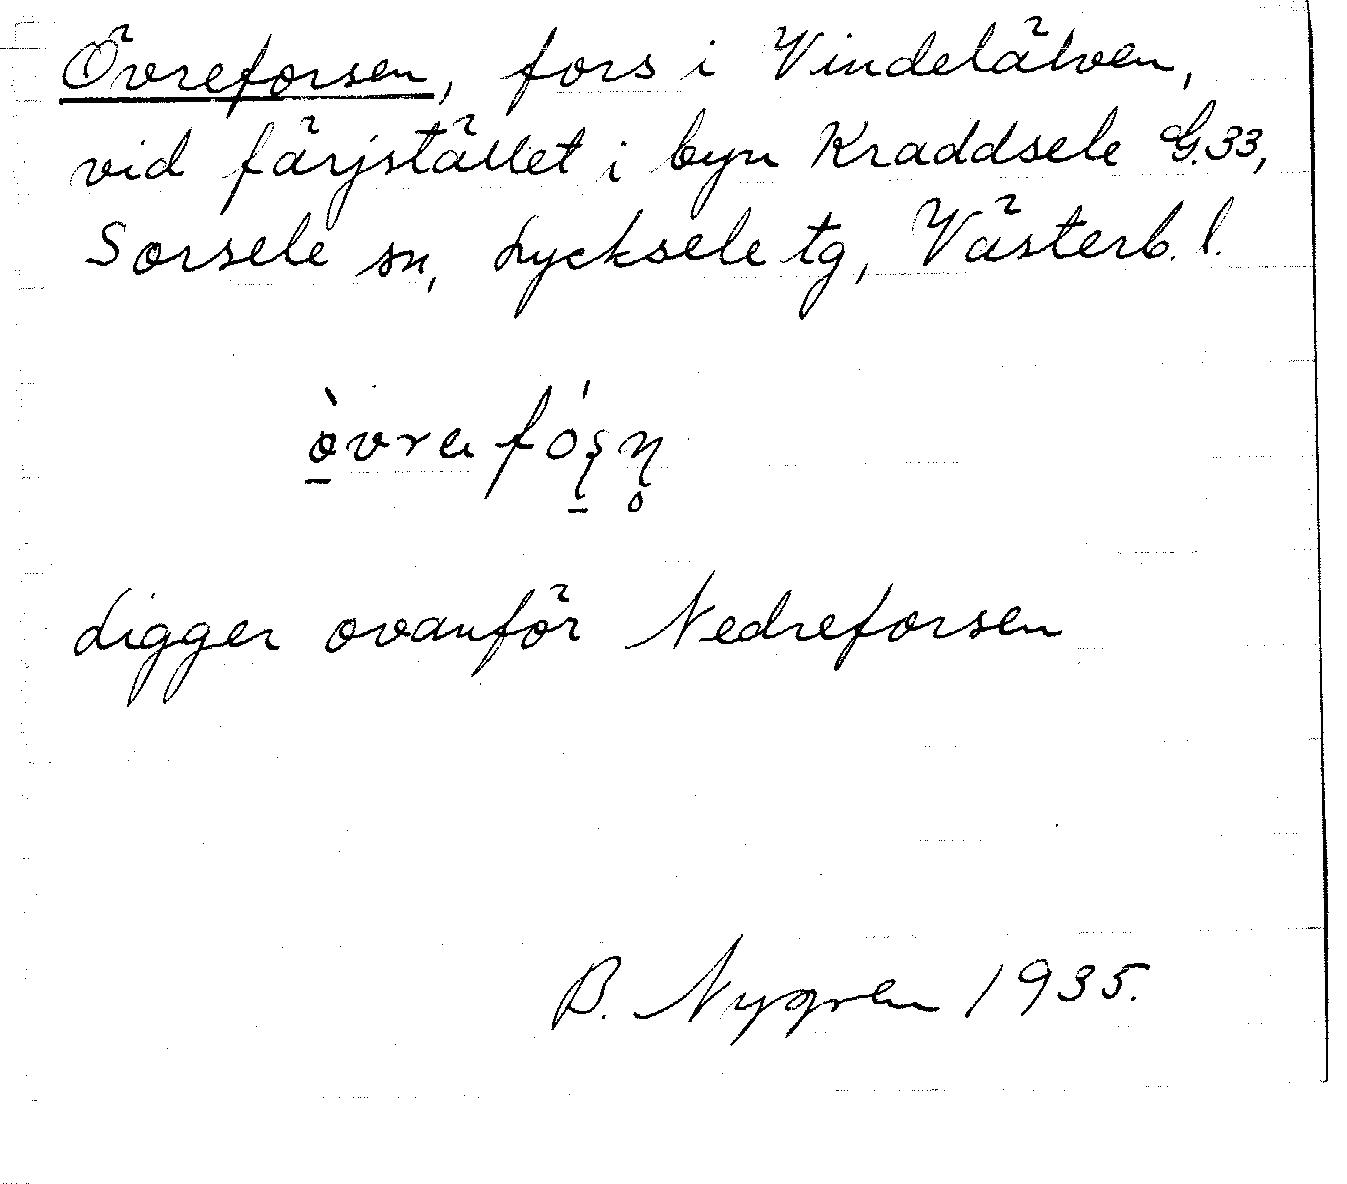 Övreforsen, fors i Vindelälven,
vid färjstället i byn Kraddsele G.33,
Sorsele sn, Lycksele tg, Västerb. l.
Ligger ovanför Nedreforsen
B. Nygren 1935.